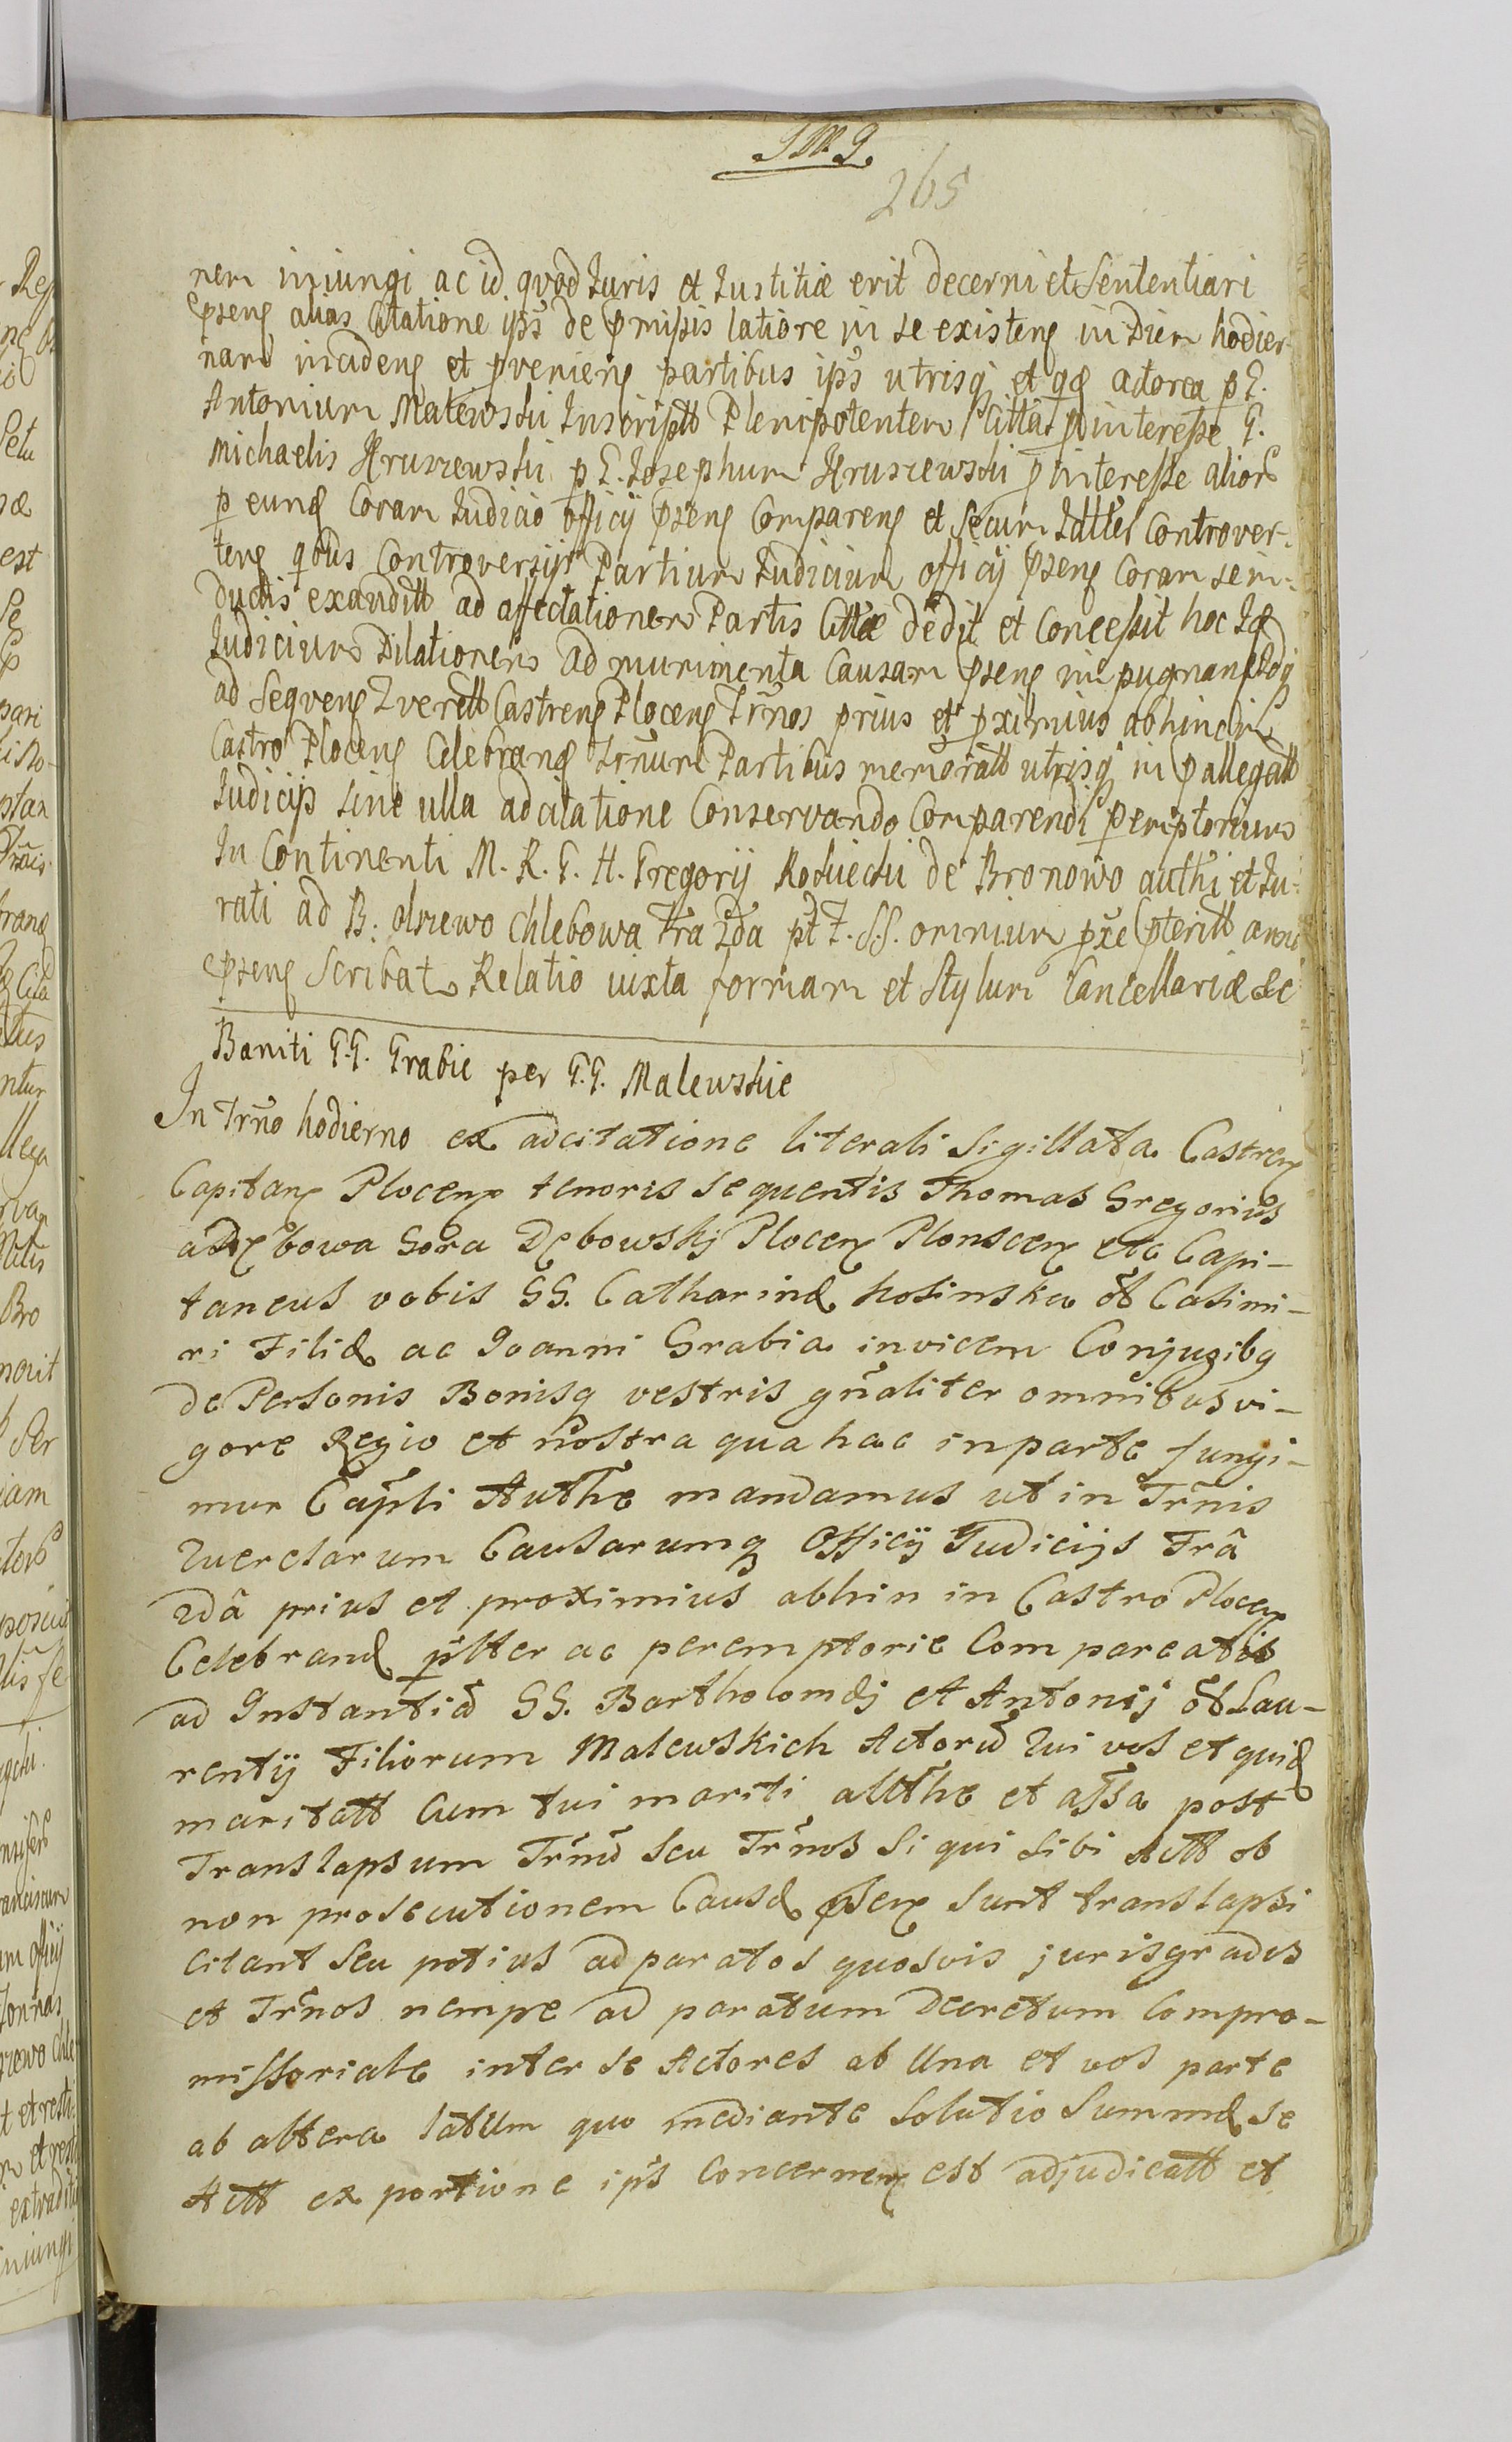 265
nem iniungi ac id quod Iuris et Iustitiæ erit decerni et Sententiari
pseng alias Citatione ips de pmissis latiore in se existeng in Diem hodier-
nam incideng et pveniens partibus ips utrisq et qd actorea p G.
Antonium Malewski Inscriptt Plenipotentem Citta p interesse G.
Michaelis Kruszewski p G. Josephum Kruszewski p interesse alior
p eund Coram Iudicio officij pseng Compareng et secum Controver-
teng qbus Controversijs Partium Iudicium officij pseng Coram se in-
ductis exauditt ad affectationem Partis Cittæ dedit et Concessit hoc Id
Iudicium Dilationem ad munimenta Causam pseng impugnan
ad Seqveng Qverell Castreng Ploceng Trnos prius et pximius abhinc in
Castro Ploceng Celebrand Trnum Partibus memoratt utrisq in pallegatt
Iudicijs sine ulla adcitatione Conservando Comparendi pemptorium
In Continenti M. R. G. H. Gregorij Rokicki de Bronowo authi et Iu-
rati ad B: olszewo Chlebowa Fra 2da pt F. S.S. omnium pxe pteritt anni
pseng Scribat Relatio iuxta formam et Stylum Cancellariæ &c
Baniti G.G. Grabie per G.G. Malewskie
In Trno hodierno ex adcitatione literali Sigillata Castren
Capitan Plocen tenoris sequentis Thomas Gregorius
a Dębowa Gora Dębowskj Plocen Plonscen etc Capi-
taneus vobis GG. Catharinæ Kosinska ol Casimi-
ri Filiæ ac Joanni Grabia invicem Conjugibq
de Personis Bonisq vestris gnaliter omnibus vi-
gore Regio et nostra qua hac in parte fungi-
mur Capli Authe mandamus ut in Trnis
Querelarum Causarumq Officij Judicijs Frâ
2dâ prius et proximius abhin in Castro Plocen
Celebrand plter ac peremptorie Compareatis
ad Instantiā GG. Bartholomæj et Antonij ol Lau-
rentij Filiorum Malewskich Actorū Qui vos et quid
maritatt Cum tui mariti authe et assa post
Translapsum Trnū seu Trnos si qui sibi Actt ob
non prosecutionem Causæ psen sunt translapsi
citant seu potius adparatos quosvis juris gradus
et Trnos nempe ad paratum Decretum Compro-
missoriale inter se Actores ab Una et vos parte
ab altera latum quo mediante Solutio Summæ se
Actt ex portione ips Concernen est adjudicatt et